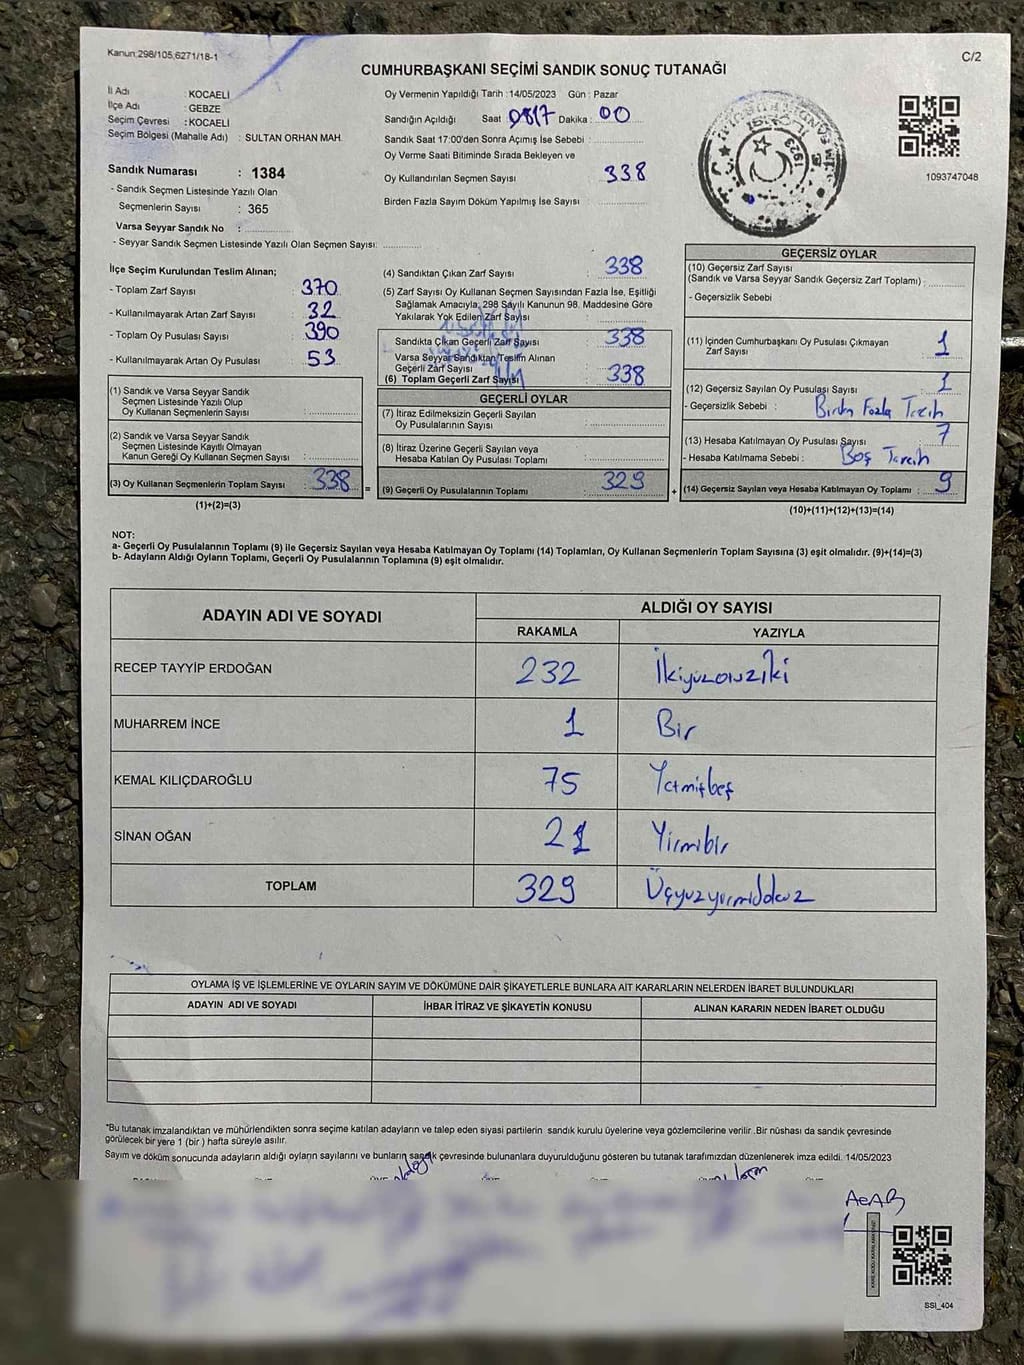 Kanun:298/105,6271/18-1
C/2
CUMHURBAŞKANI SEÇİMİ SANDIK SONUÇ TUTANAĞI
İl Adı : KOCAELİ
İlçe Adı : GEBZE
Seçim Çevresi : KOCAELİ
Seçim Bölgesi (Mahalle Adı) : SULTAN ORHAN MAH.
Sandık Numarası : 1384
- Sandık Seçmen Listesinde Yazılı Olan
Seçmenlerin Sayısı : 365
Varsa Seyyar Sandık No :
- Seyyar Sandık Seçmen Listesinde Yazılı Olan Seçmen Sayısı:
Oy Vermenin Yapıldığı Tarih : 14/05/2023 Gün : Pazar
Sandığın Açıldığı Saat Dakika : 00
Sandık Saat 17:00'den Sonra Açımış İse Sebebi :
Oy Verme Saati Bitiminde Sırada Bekleyen ve
Oy Kullandırılan Seçmen Sayısı 338
Birden Fazla Sayım Döküm Yapılmış İse Sayısı :
1923
1093747048
İlçe Seçim Kurulundan Teslim Alınan;
- Toplam Zarf Sayısı : 370
- Kullanılmayarak Artan Zarf Sayısı : 32
- Toplam Oy Pusulası Sayısı : 390
- Kullanılmayarak Artan Oy Pusulası : 53
(1) Sandık ve Varsa Seyyar Sandık
Seçmen Listesinde Yazılı Olup
Oy Kullanan Seçmenlerin Sayısı :
(2) Sandık ve Varsa Seyyar Sandık
Seçmen Listesinde Kayıtlı Olmayan
Kanun Gereği Oy Kullanan Seçmen Sayısı :
(3) Oy Kullanan Seçmenlerin Toplam Sayısı : 338 =
(1)+(2)=(3)
(4) Sandıktan Çıkan Zarf Sayısı : 338
(5) Zarf Sayısı Oy Kullanan Seçmen Sayısından Fazla İse, Eşitliği
Sağlamak Amacıyla, 298 Sayılı Kanunun 98. Maddesine Göre
Yakılarak Yok Edilen Zarf Sayısı :
Sandıkta Çıkan Geçerli Zarf Sayısı : 338
Varsa Seyyar Sandıktan Teslim Alınan
Geçerli Zarf Sayısı :
(6) Toplam Geçerli Zarf Sayısı : 338
GEÇERLİ OYLAR
(7) İtiraz Edilmeksizin Geçerli Sayılan
Oy Pusulalarının Sayısı :
(8) İtiraz Üzerine Geçerli Sayılan veya
Hesaba Katılan Oy Pusulası Toplamı :
(9) Geçerli Oy Pusulalarının Toplamı : 329 +
GEÇERSİZ OYLAR
(10) Geçersiz Zarf Sayısı
(Sandık ve Varsa Seyyar Sandık Geçersiz Zarf Toplamı) :
- Geçersizlik Sebebi
(11) İçinden Cumhurbaşkanı Oy Pusulası Çıkmayan
Zarf Sayısı : 1
(12) Geçersiz Sayılan Oy Pusulası Sayısı : 1
- Geçersizlik Sebebi : Birden Fazla Tercih
(13) Hesaba Katılmayan Oy Pusulası Sayısı : 7
- Hesaba Katılmama Sebebi : Boş Tercih
(14) Geçersiz Sayılan veya Hesaba Katılmayan Oy Toplamı : 9
(10)+(11)+(12)+(13)=(14)
NOT:
a- Geçerli Oy Pusulalarının Toplamı (9) ile Geçersiz Sayılan veya Hesaba Katılmayan Oy Toplamı (14) Toplamları, Oy Kullanan Seçmenlerin Toplam Sayısına (3) eşit olmalıdır. (9)+(14)=(3)
b- Adayların Aldığı Oyların Toplamı, Geçerli Oy Pusulalarının Toplamına (9) eşit olmalıdır.
ADAYIN ADI VE SOYADI
ALDIĞI OY SAYISI
RAKAMLA YAZIYLA
RECEP TAYYİP ERDOĞAN 232 İkiyüzotuziki
MUHARREM İNCE 1 Bir
KEMAL KILIÇDAROĞLU 75 Yetmişbeş
SİNAN OĞAN 21 Yirmibir
TOPLAM 329 Üçyüzyirmidokuz
OYLAMA İŞ VE İŞLEMLERİNE VE OYLARIN SAYIM VE DÖKÜMÜNE DAİR ŞİKAYETLERLE BUNLARA AİT KARARLARIN NELERDEN İBARET BULUNDUKLARI
ADAYIN ADI VE SOYADI İHBAR İTİRAZ VE ŞİKAYETİN KONUSU ALINAN KARARIN NEDEN İBARET OLDUĞU
*Bu tutanak imzalandıktan ve mühürlendikten sonra seçime katılan adayların ve talep eden siyasi partilerin sandık kurulu üyelerine veya gözlemcilerine verilir. Bir nüshası da sandık çevresinde
görülecek bir yere 1 (bir) hafta süreyle asılır.
Sayım ve döküm sonucunda adayların aldığı oyların sayılarını ve bunların sandık çevresinde bulunanlara duyurulduğunu gösteren bu tutanak tarafımızdan düzenlenerek imza edildi. 14/05/2023
SSI_404